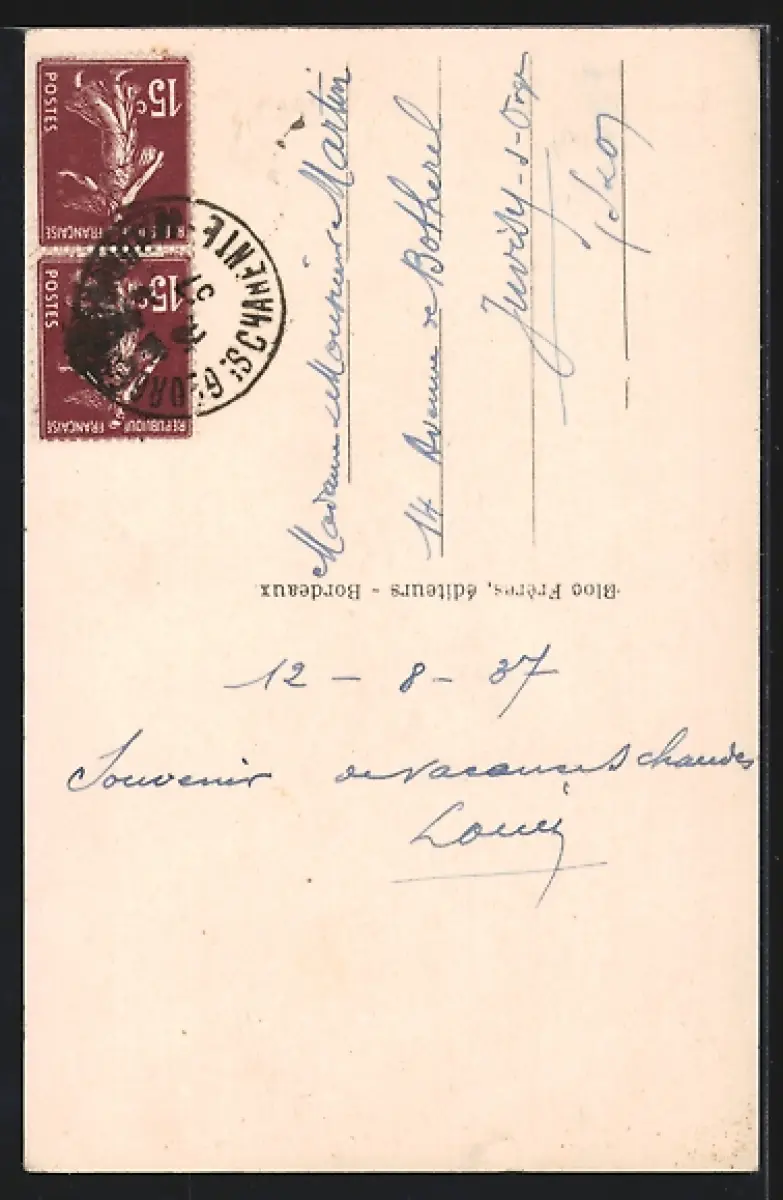 15c
POSTES
FRANÇAISE
15c
POSTES
RÉPUBLIQUE
FRANÇAISE
37
Madame Monsieur Martin
14 Avenue de Botherel
Juvisy-s-Orge
S et O
Bloc Frères, éditeurs - Bordeaux
12 - 8 - 37
Souvenir de vacances chaudes
Louis